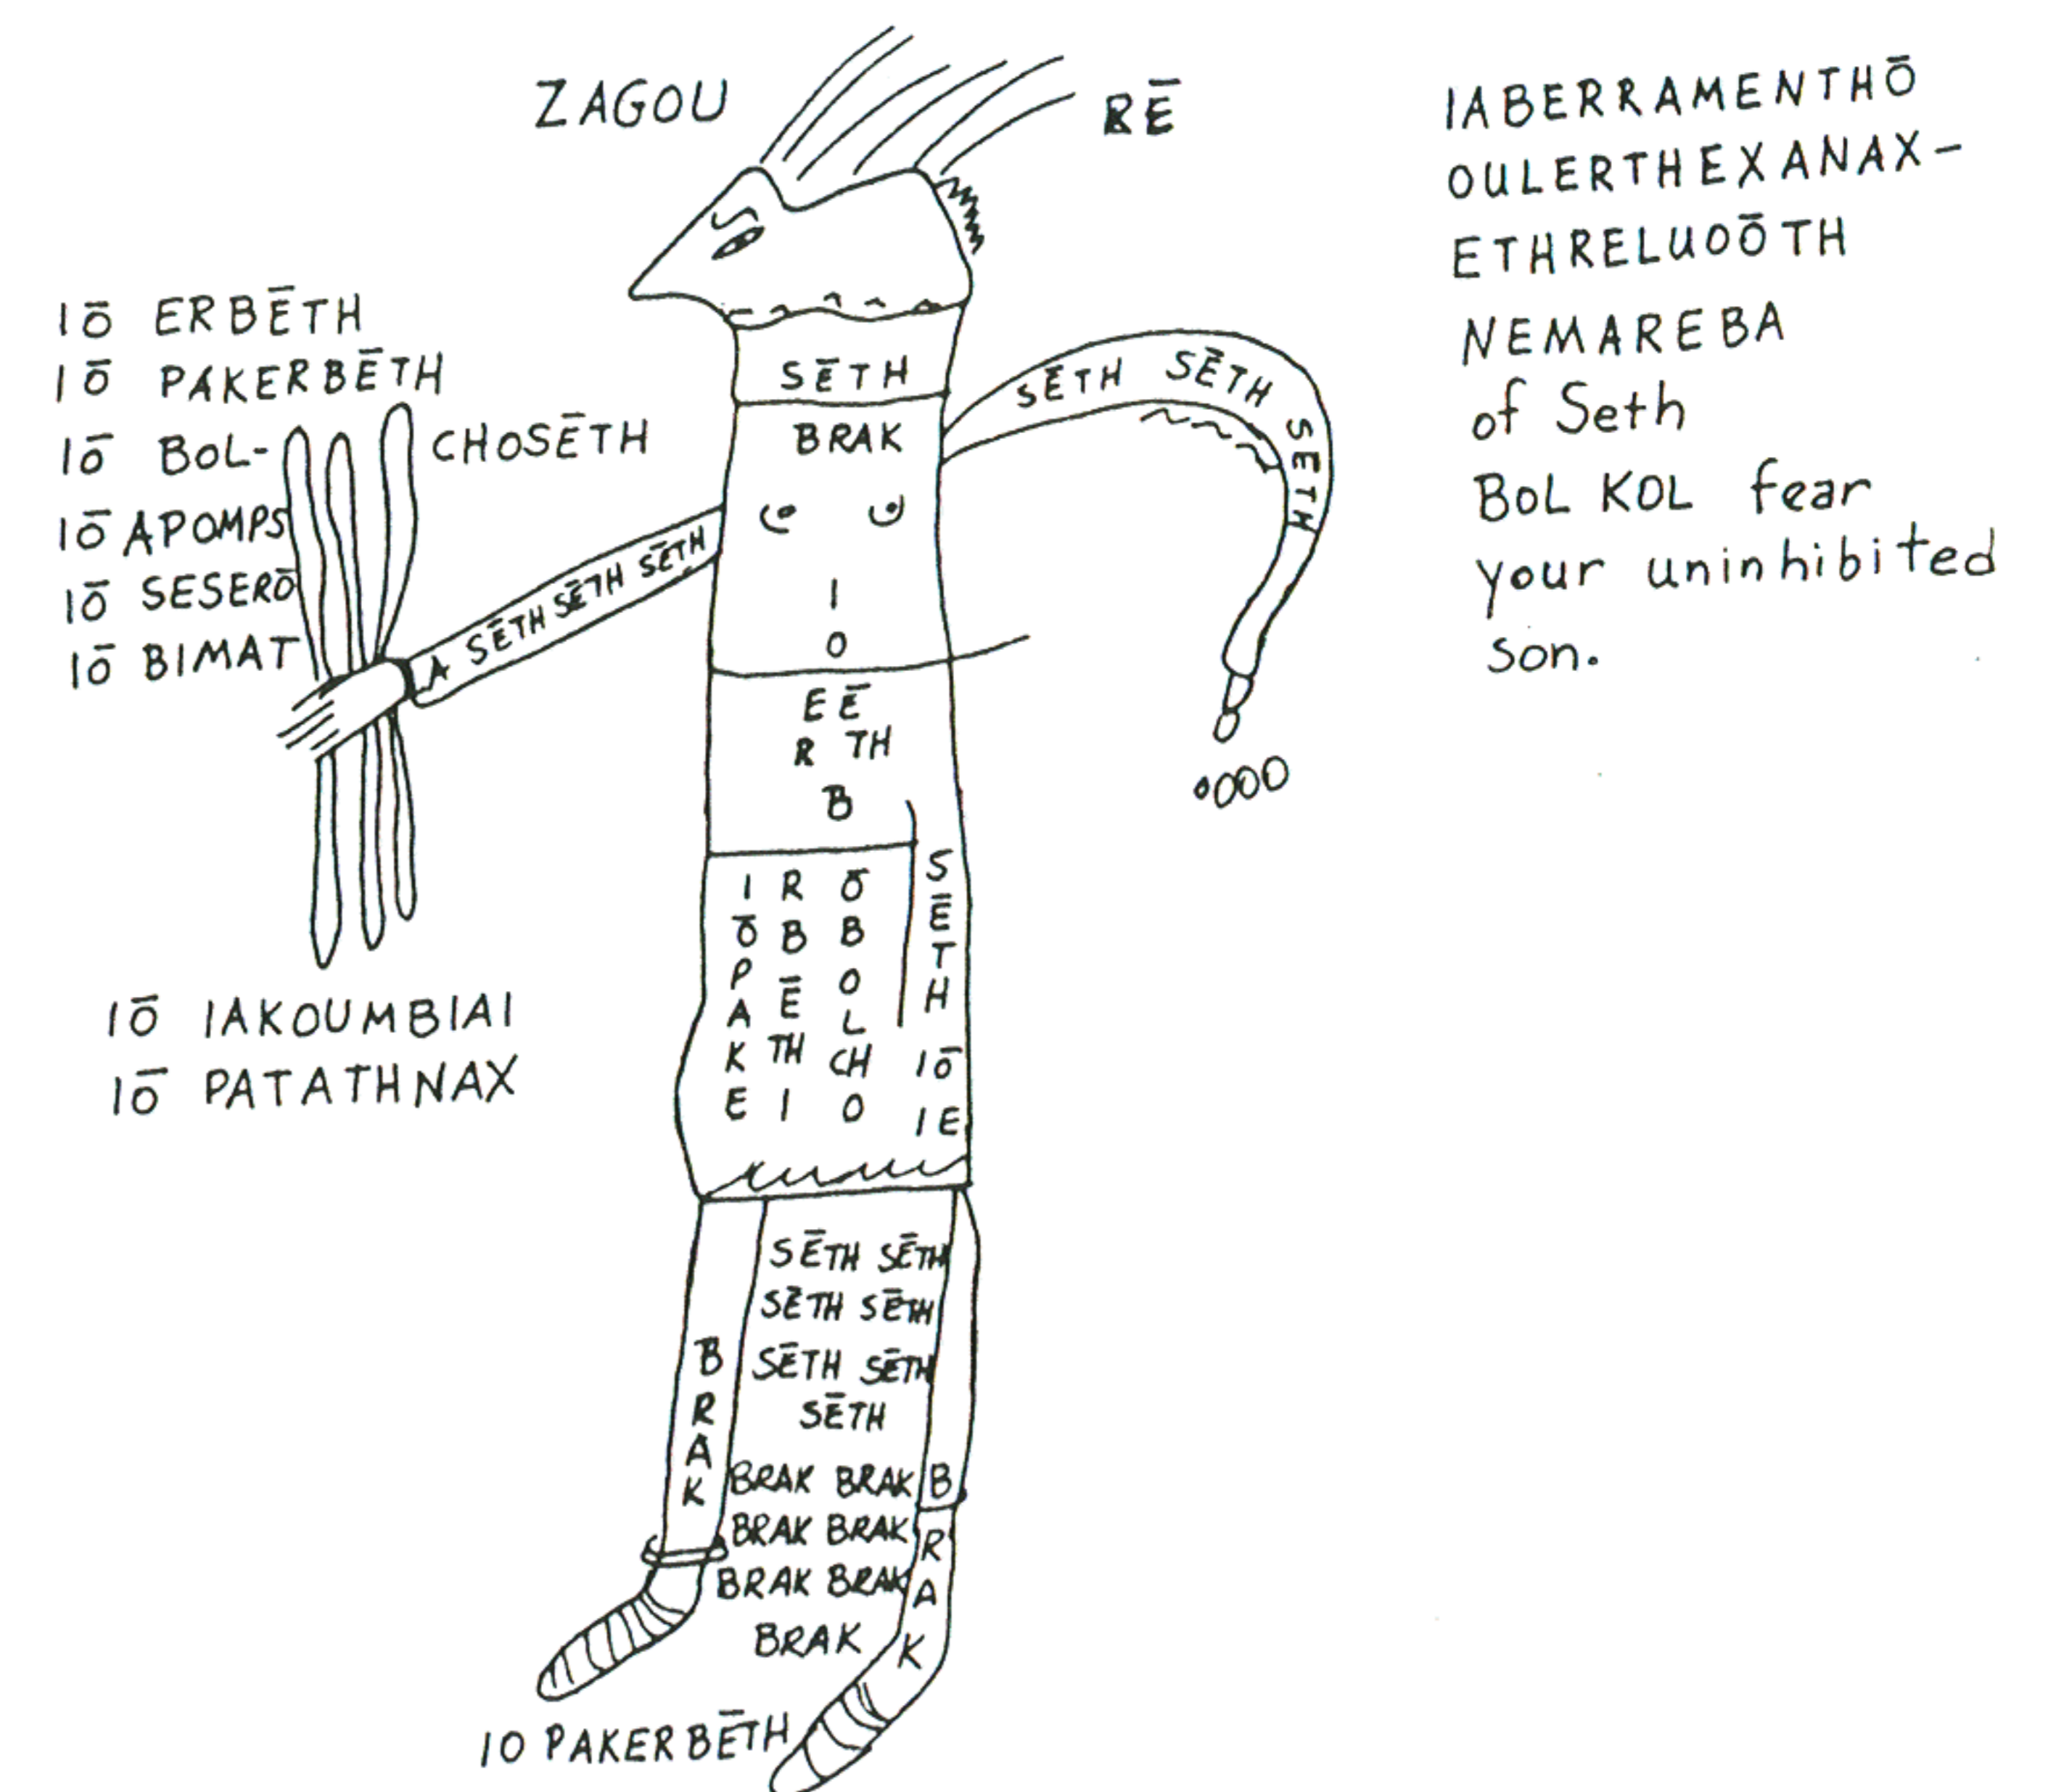 ZAGOU
RĒ
IABERRAMENTHŌ
OULERTHEXANAX-
ETHRELUOŌTH
NEMAREBA
of Seth
BOL KOL fear
your uninhibited
son.
IŌ ERBĒTH
IŌ PAKERBĒTH
IŌ BOL- CHOSĒTH
IŌ APOMPS
IŌ SESERŌ
IŌ BIMAT
IŌ IAKOUMBIAI
IŌ PATATHNAX
SĒTH
BRAK
I
O
E Ē
R TH
B
A SĒTH SĒTH SĒTH
SĒTH SĒTH SĒTH
I R Ō
Ō B B
P Ē O
A TH L
K I CH
E O
SĒTH
IŌ
IE
SĒTH SĒTH
SĒTH SĒTH
SĒTH SĒTH
SĒTH
BRAK BRAK
BRAK BRAK
BRAK BRAK
BRAK
BRAK
BRAK
IO PAKERBĒTH